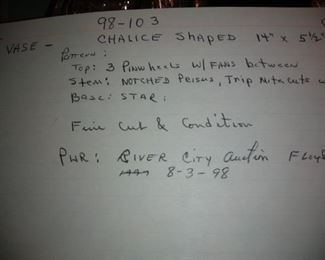 98-103
VASE - CHALICE SHAPED 14" x 5½"
Pattern:
Top: 3 PINWheels W/ FANS between
Stem: NOTCHED PRISMS, Trip Mitecuts
Base: STAR;
Fine Cut & Condition
PWR: RIVER City Auction Floyd
8-3-98